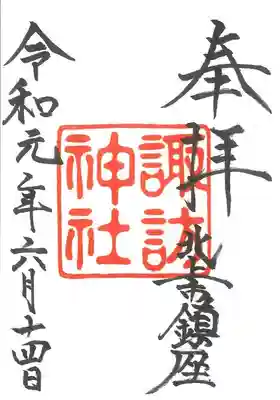 奉拝
鎮座
諏訪
神社
令和元年六月十四日